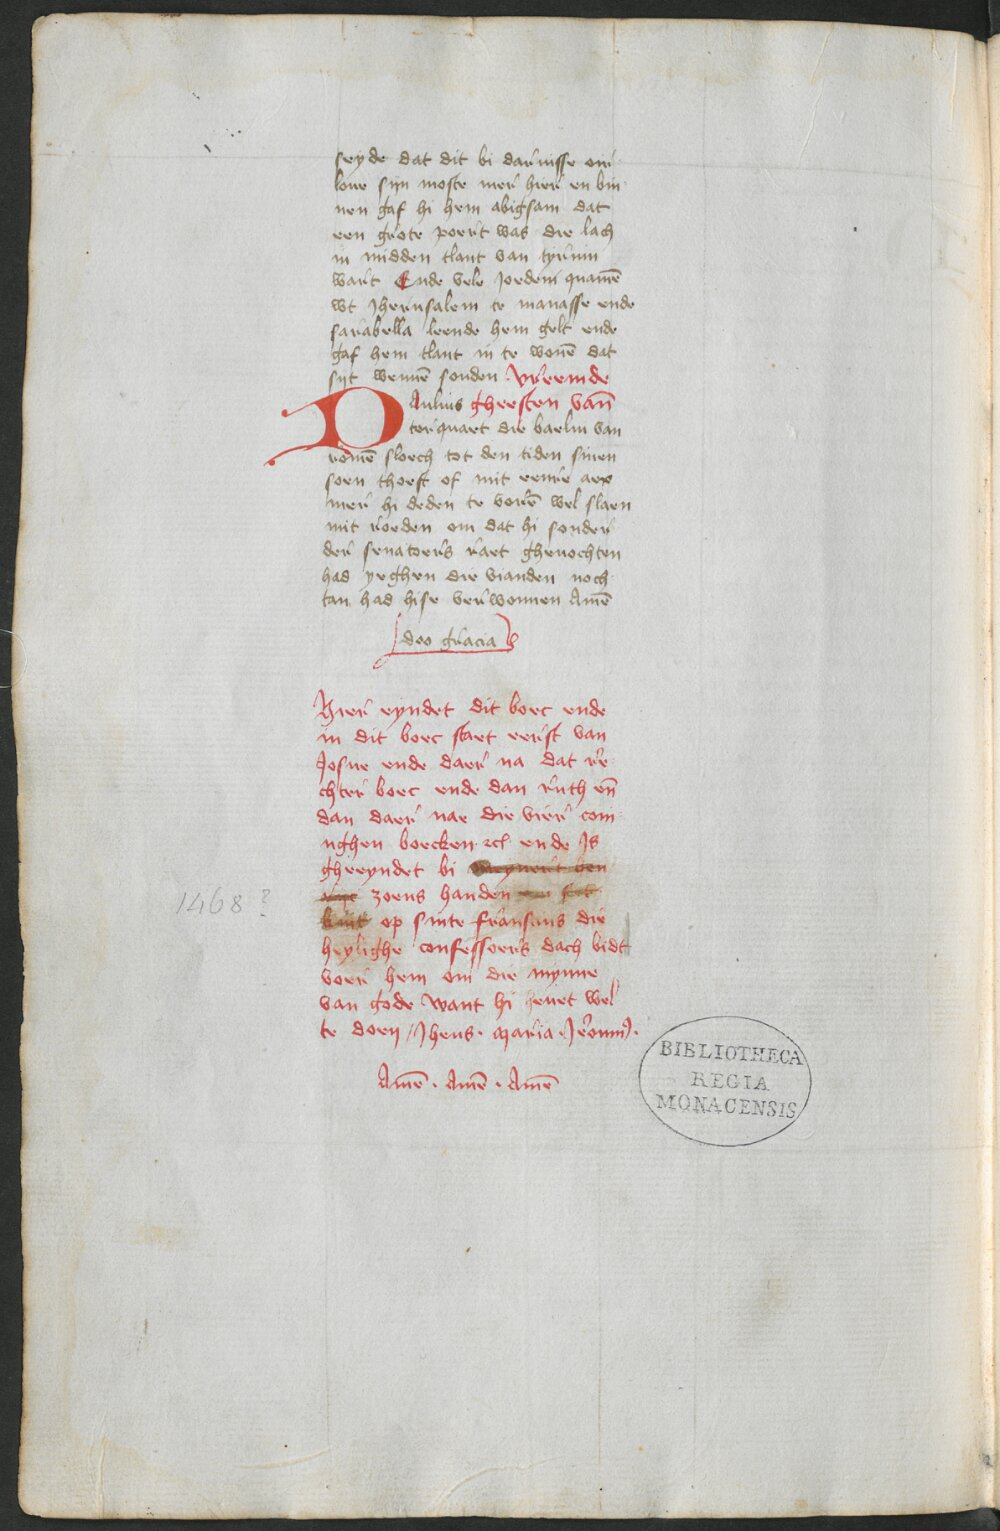 seyde dat dit bi darnisse oir
loue sijn moste mer hier en bin
nen gaf hi hem abigsam dat
een grote poert was die lach
in midden tlant van tyrum
wart Ende vele Joeden quamē
wt Jherusalem te manasse ende
sarabella leende hem gelt ende
gaf hem tlant in te wonē dat
sijt wennē souden vreemde
Aulius gheesten van
torquart die baelm van
romē sloech tot den tiden sinen
soen thoeft of mit eenre aex
mer hi deden te vorē wel slaen
mit roeden om dat hi sonder
der senatoers raet ghevochten
had yeghen die vianden noch
tan had hise verwonnen Amē
deo gracias
Hier eyndet dit boec ende
in dit boec staet eerst van
Josue ende daer na dat re
chter boec ende dan ruth eñ
dan daer nae die vier coni
nghen boecken ende Is
gheeyndet bi
zoens handen
op sinte fransus die
heylighe confessoers dach bidt
voer hem om die mynne
van gode want hi heuet wel
te doen / Jhens · maria · Jeronim9 ·
Amē · Amē · Amē
1468?
BIBLIOTHECA
REGIA
MONACENSIS